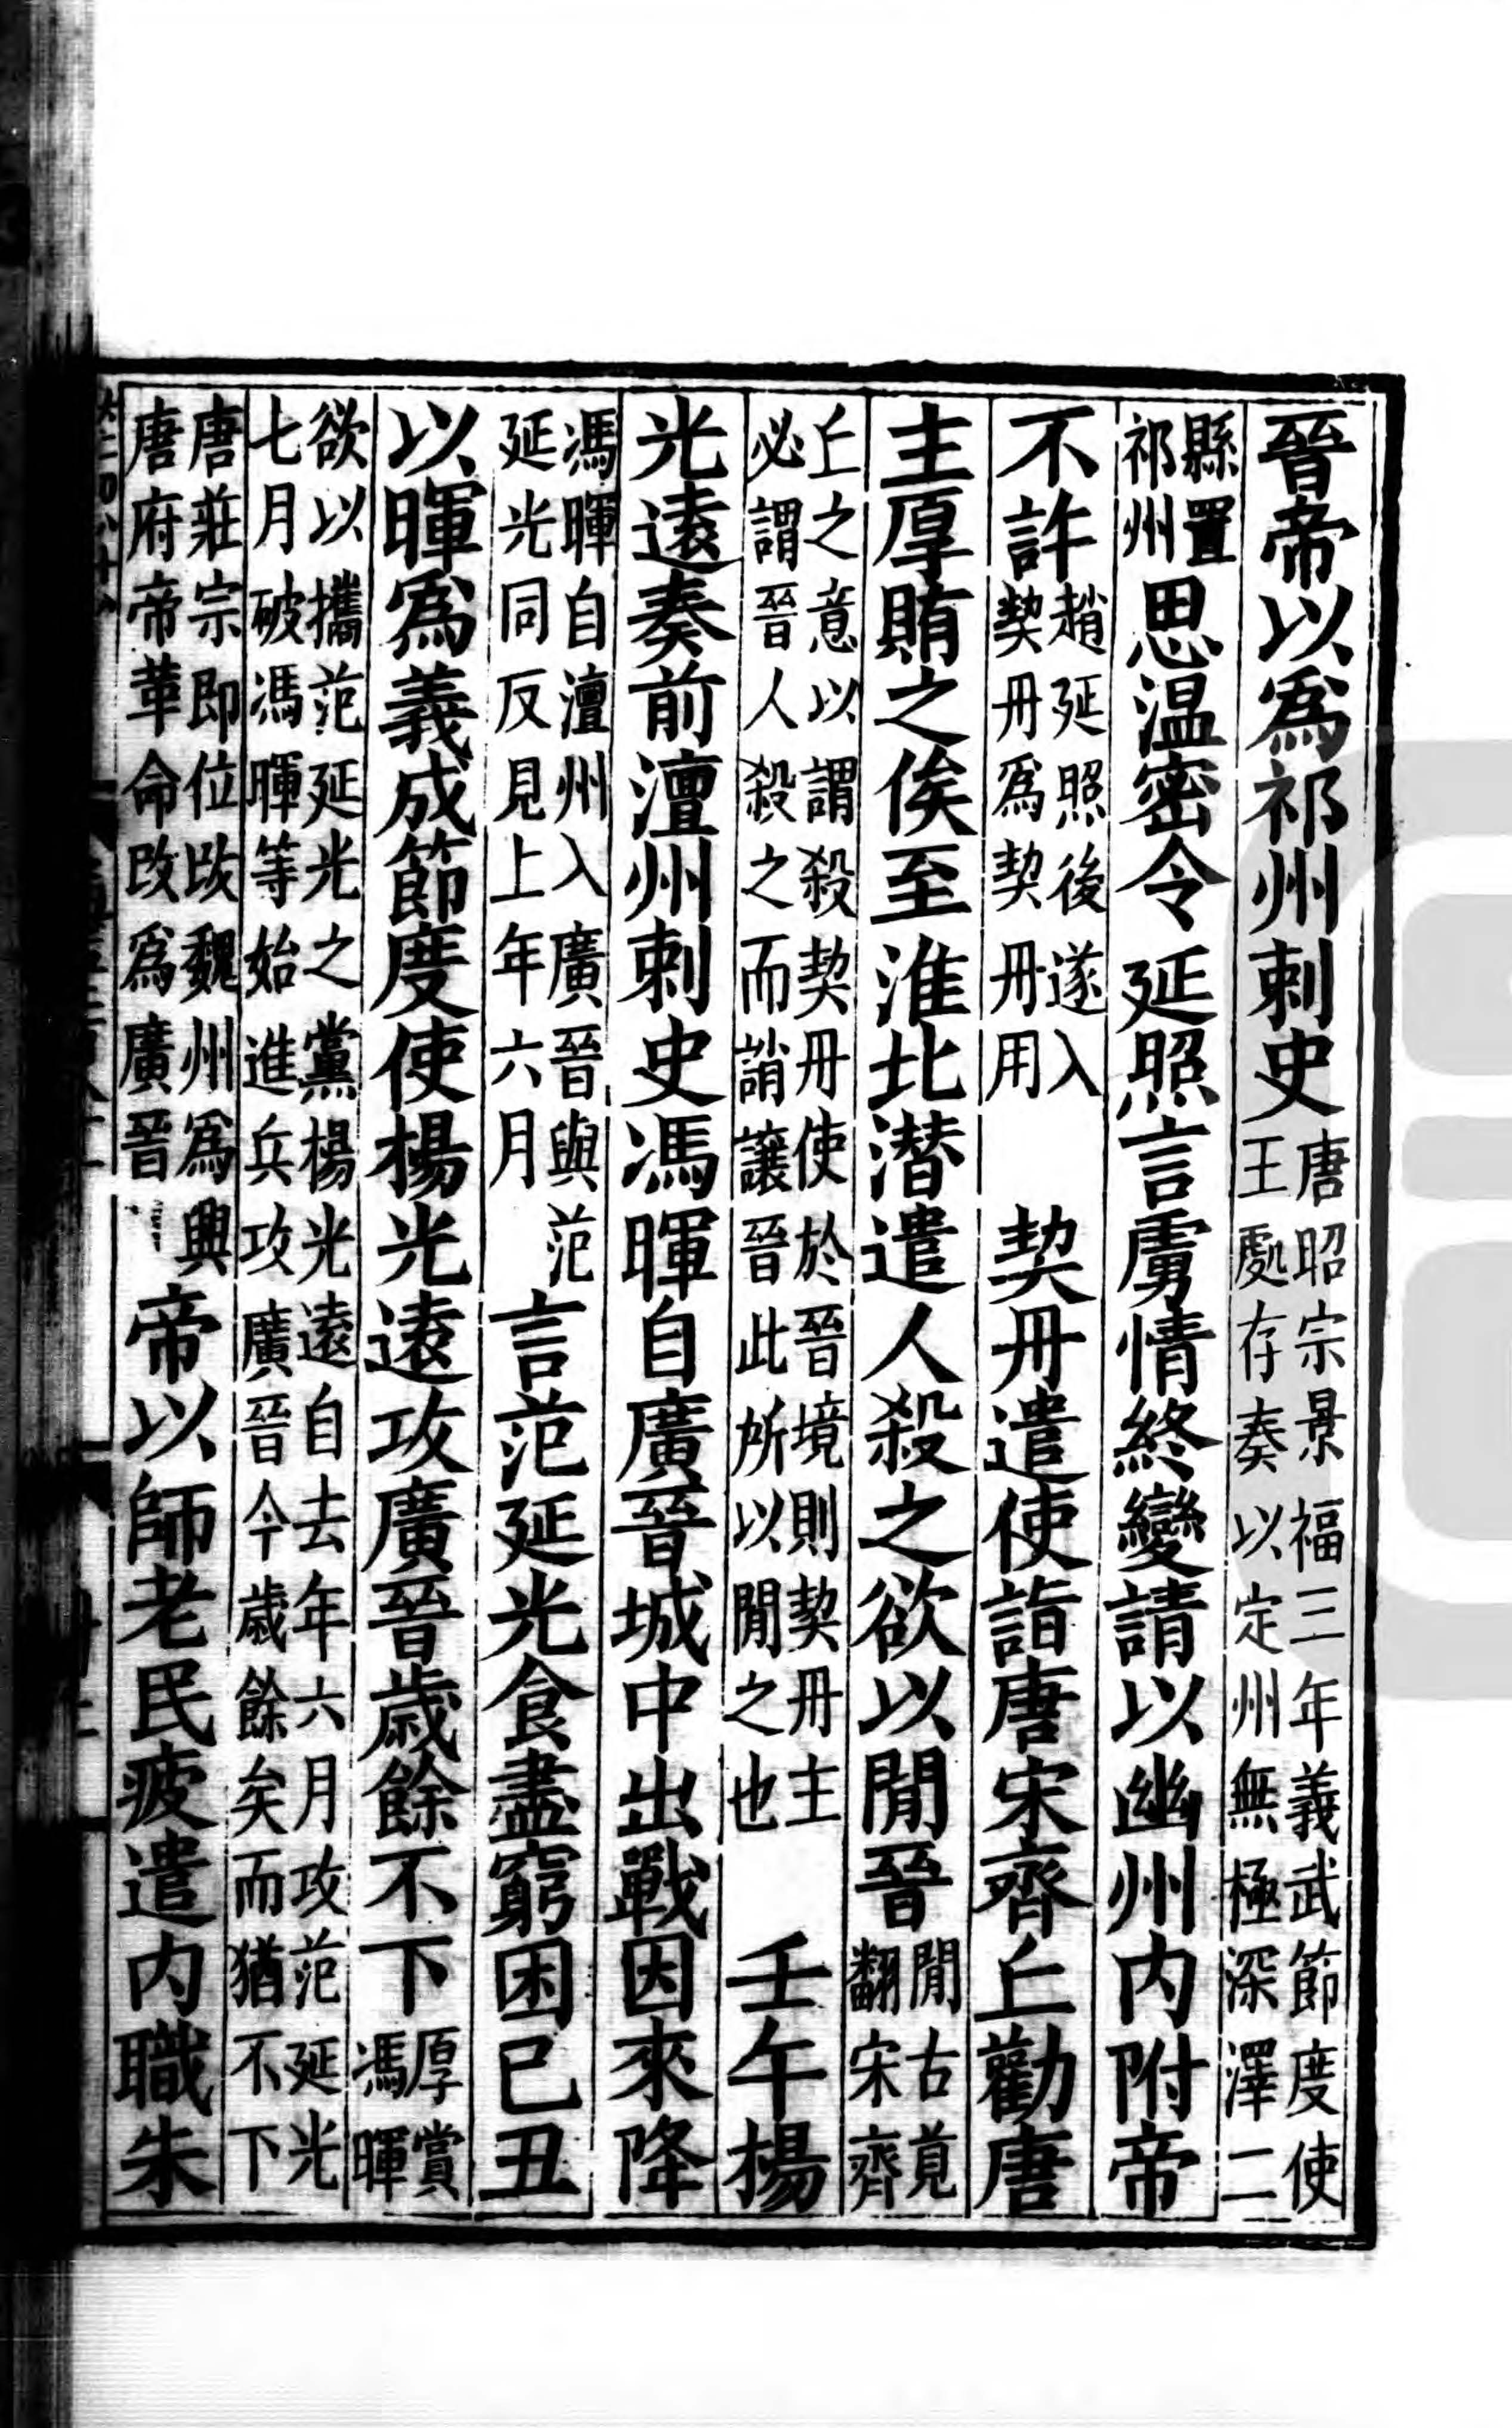 晉帝以爲祁州刺史唐昭宗景福三年義武節度使王處存奏以定州無極深澤二
縣置祁州思温密令延照言虜情終變請以幽州内附帝
不許趙延照後遂入契丹爲契丹用契丹遣使詣唐宋齊丘勸唐
主厚賄之俟至淮北潜遣人殺之欲以閒晉閒古莧翻宋齊
丘之意以謂殺契丹使於晉境則契丹主必謂晉人殺之而誚讓晉此所以閒之也壬午楊
光遠奏前澶州刺史馮暉自廣晉城中出戰因來降
馮暉自澶州入廣晉與范延光同反見上年六月言范延光食盡窮困已丑
以暉爲義成節度使楊光遠攻廣晉歲餘不下厚賞馮暉
欲以攜范延光之黨楊光遠自去年六月攻范延光七月破馮暉等始進兵攻廣晉今歲餘矣而猶不下
唐莊宗即位改魏州爲興唐府帝革命改爲廣晉帝以師老民疲遣内職朱